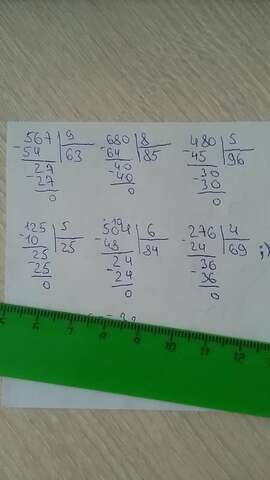 567 | 9   680 | 8   480 | 5
-54 | 63   -64 | 85   -45 | 96
27   40   30
-27   -40   -30
0   0   0
125 | 5   504 | 6   276 | 4   ;)
-10 | 25   -48 | 84   -24 | 69
25   24   36
-25   -24   -36
0   0   0
5 6 7 8 9 10 11 12